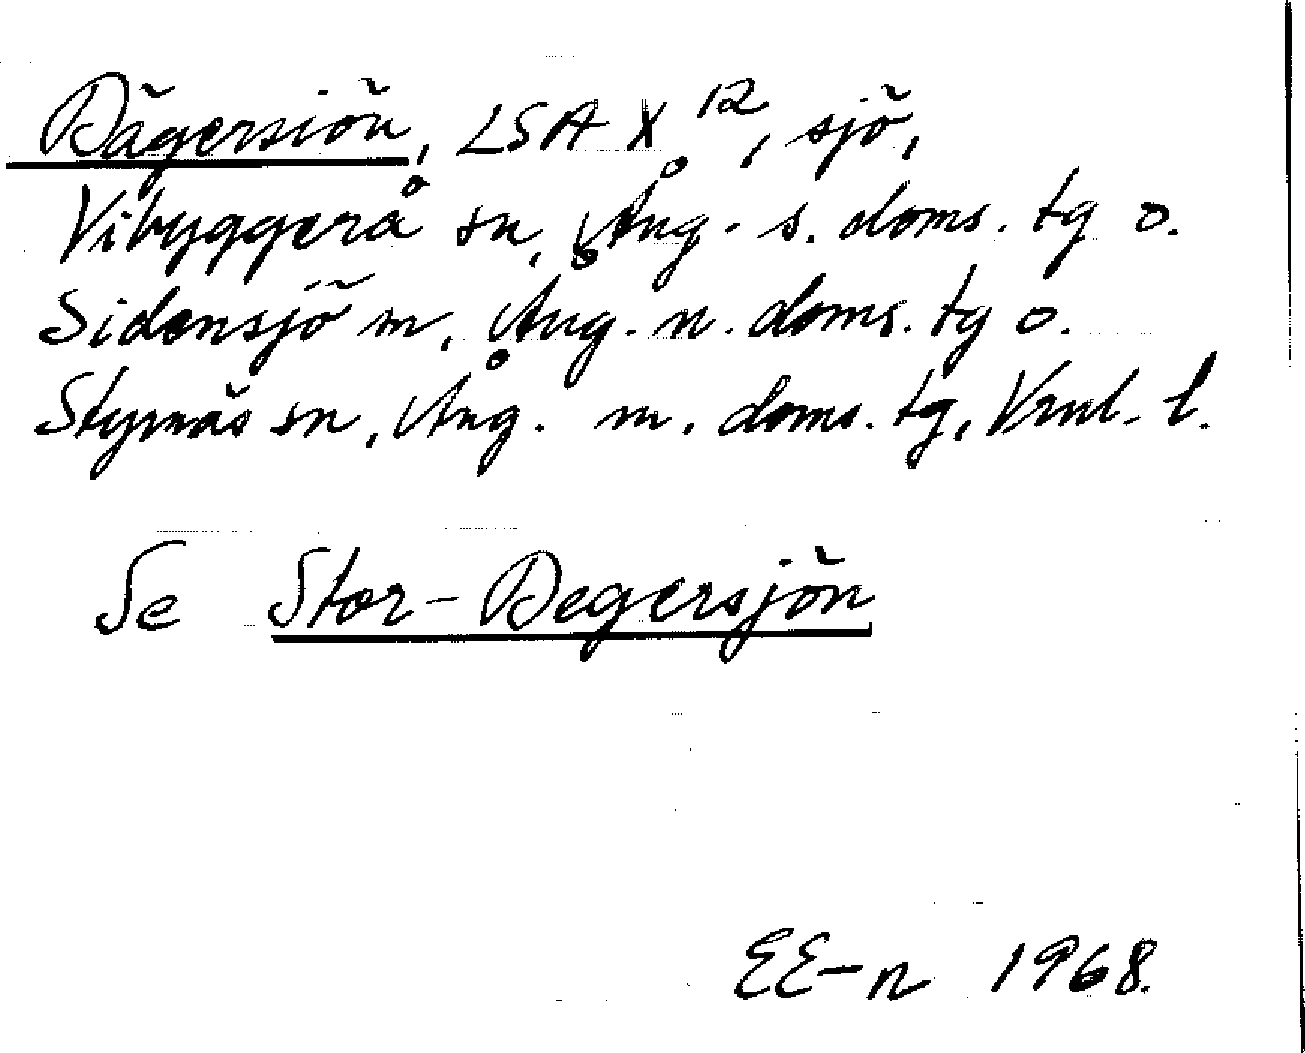 Dägersiön, LSA X 12, sjö,
Vibyggerå sn, Ång. s. doms. tg o.
Sidensjö sn, Ång. n. doms. tg o.
Styrnäs sn, Ång. m. doms. tg, Vnl. l.
Se Stor-Degersjön
EE-n 1968.